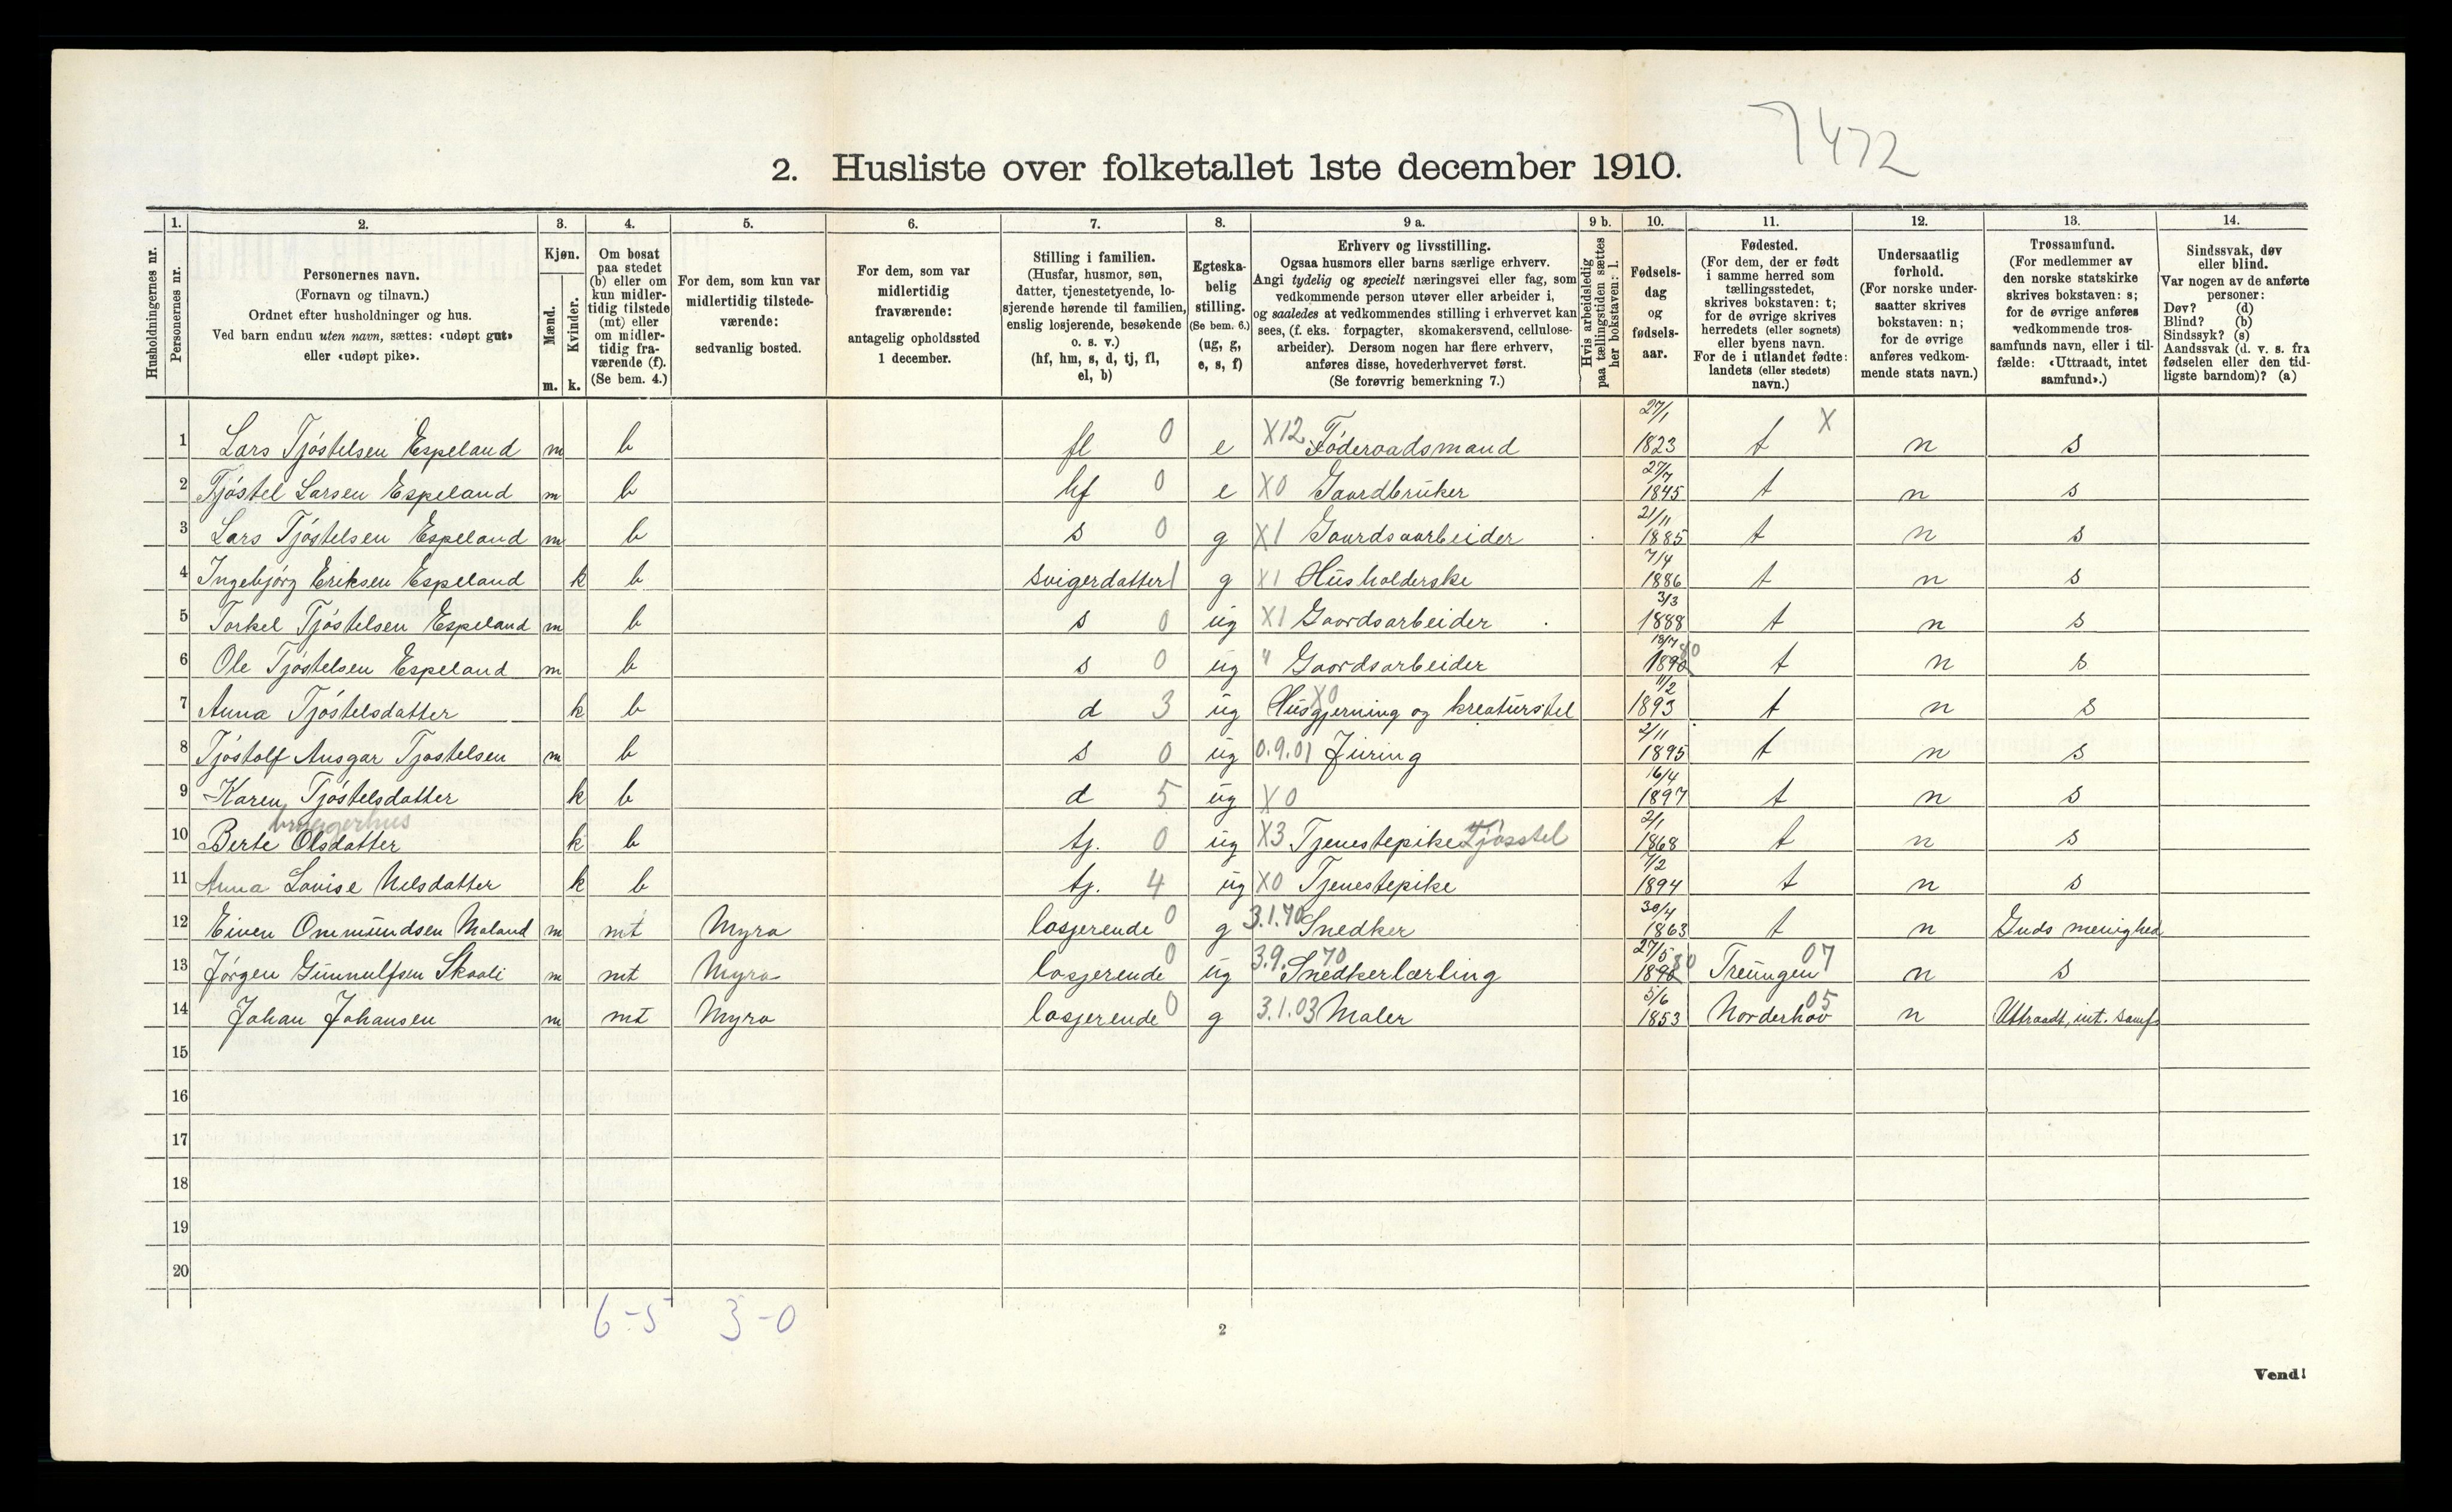 7472
2. Husliste over folketallet 1ste december 1910.
1. 2. 3. 4. 5. 6. 7. 8. 9 a. 9 b. 10. 11. 12. 13. 14.
Husholdningernes nr.
Personernes nr.
Personernes navn.
(Fornavn og tilnavn.)
Ordnet efter husholdninger og hus.
Ved barn endnu uten navn, sættes: «udøpt gut»
eller «udøpt pike».
Kjøn.
Mænd.
Kvinder.
m. k.
Om bosat
paa stedet
(b) eller om
kun midler-
tidig tilstede
(mt) eller
om midler-
tidig fra-
værende (f).
(Se bem. 4.)
For dem, som kun var
midlertidig tilstede-
værende:
sedvanlig bosted.
For dem, som var
midlertidig
fraværende:
antagelig opholdssted
1 december.
Stilling i familien.
(Husfar, husmor, søn,
datter, tjenestetyende, lo-
sjerende hørende til familien,
enslig losjerende, besøkende
o. s. v.)
(hf, hm, s, d, tj, fl,
el, b)
Egteska-
belig
stilling.
(Se bem. 6.)
(ug, g,
e, s, f)
Erhverv og livsstilling.
Ogsaa husmors eller barns særlige erhverv.
Angi tydelig og specielt næringsvei eller fag, som
vedkommende person utøver eller arbeider i,
og saaledes at vedkommendes stilling i erhvervet kan
sees, (f. eks. forpagter, skomakersvend, cellulose-
arbeider). Dersom nogen har flere erhverv,
anføres disse, hovederhvervet først.
(Se forøvrig bemerkning 7.)
Hvis arbeidsledig
paa tællingstiden sættes
her bokstaven: l.
Fødsels-
dag
og
fødsels-
aar.
Fødested.
(For dem, der er født
i samme herred som
tællingsstedet,
skrives bokstaven: t;
for de øvrige skrives
herredets (eller sognets)
eller byens navn.
For de i utlandet fødte:
landets (eller stedets)
navn.)
Undersaatlig
forhold.
(For norske under-
saatter skrives
bokstaven: n;
for de øvrige
anføres vedkom-
mende stats navn.)
Trossamfund.
(For medlemmer av
den norske statskirke
skrives bokstaven: s;
for de øvrige anføres
vedkommende tros-
samfunds navn, eller i til-
fælde: «Uttraadt, intet
samfund».)
Sindssvak, døv
eller blind.
Var nogen av de anførte
personer:
Døv? (d)
Blind? (b)
Sindssyk? (s)
Aandssvak (d. v. s. fra
fødselen eller den tid-
ligste barndom)? (a)
1 Lars Tjøstelsen Espeland m b fl 0 e X12 Føderaadsmand 27/1 1823 t X n s
2 Tjøstel Larsen Espeland m b hf 0 e X0 Gaardbruker 27/7 1845 t n s
3 Lars Tjøstelsen Espeland m b s 0 g X1 Gaardsaarbeider 21/11 1885 t n s
4 Ingebjørg Eriksen Espeland k b svigerdatter 1 g X1 Husholderske 7/4 1886 t n s
5 Torkel Tjøstelsen Espeland m b s 0 ug X1 Gaardsarbeider 3/3 1888 t n s
6 Ole Tjøstelsen Espeland m b s 0 ug " Gaardsarbeider 1890 80 t n s
7 Anna Tjøstelsdatter k b d 3 ug X0 Husgjerning og kreaturstel 11/2 1893 t n s
8 Tjøstolf Ansgar Tjøstelsen m b s 0 ug 0.9.01 Juring 2/11 1895 t n s
9 Karen Tjøstelsdatter k b d 5 ug X0 16/4 1897 t n s
10 Berte Olsdatter k b tj. 0 ug X3 Tjenestepike Fjøsstel 2/1 1868 t n s
11 Anna Lovise Nilsdatter k b tj. 4 ug X0 Tjenestepike 7/2 1894 t n s
12 Eiven Ommundsen Moland m mt Myra losjerende 0 g 3.1.70 Snedker 30/4 1863 t n Guds menighed
13 Jørgen Gunnulfsen Skaali m mt Myra losjerende 0 ug 3.9.70 Snedkerlærling 27/5 1890 80 Treungen 07 n s
14 Johan Johansen m mt Myra losjerende 0 g 3.1.03 Maler 5/6 1853 Norderhov 05 n Uttraadt, int. samf
15
16
17
18
19
20
6-5 3-0
2
Vend!